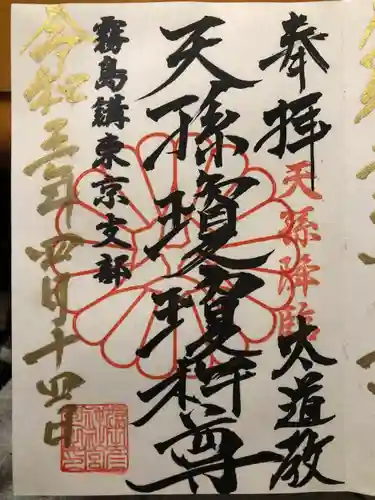 奉拝
天孫降臨
太道教
天孫瓊瓊杵尊
霧島講東京支部
令和三年四月十四日